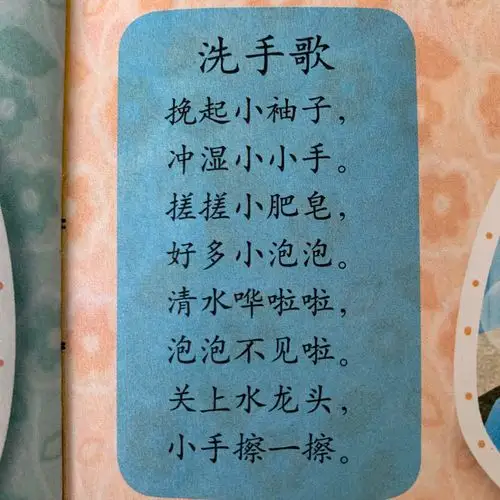 洗手歌
挽起小袖子，
冲湿小小手。
搓搓小肥皂，
好多小泡泡。
清水哗啦啦，
泡泡不见啦。
关上水龙头，
小手擦一擦。